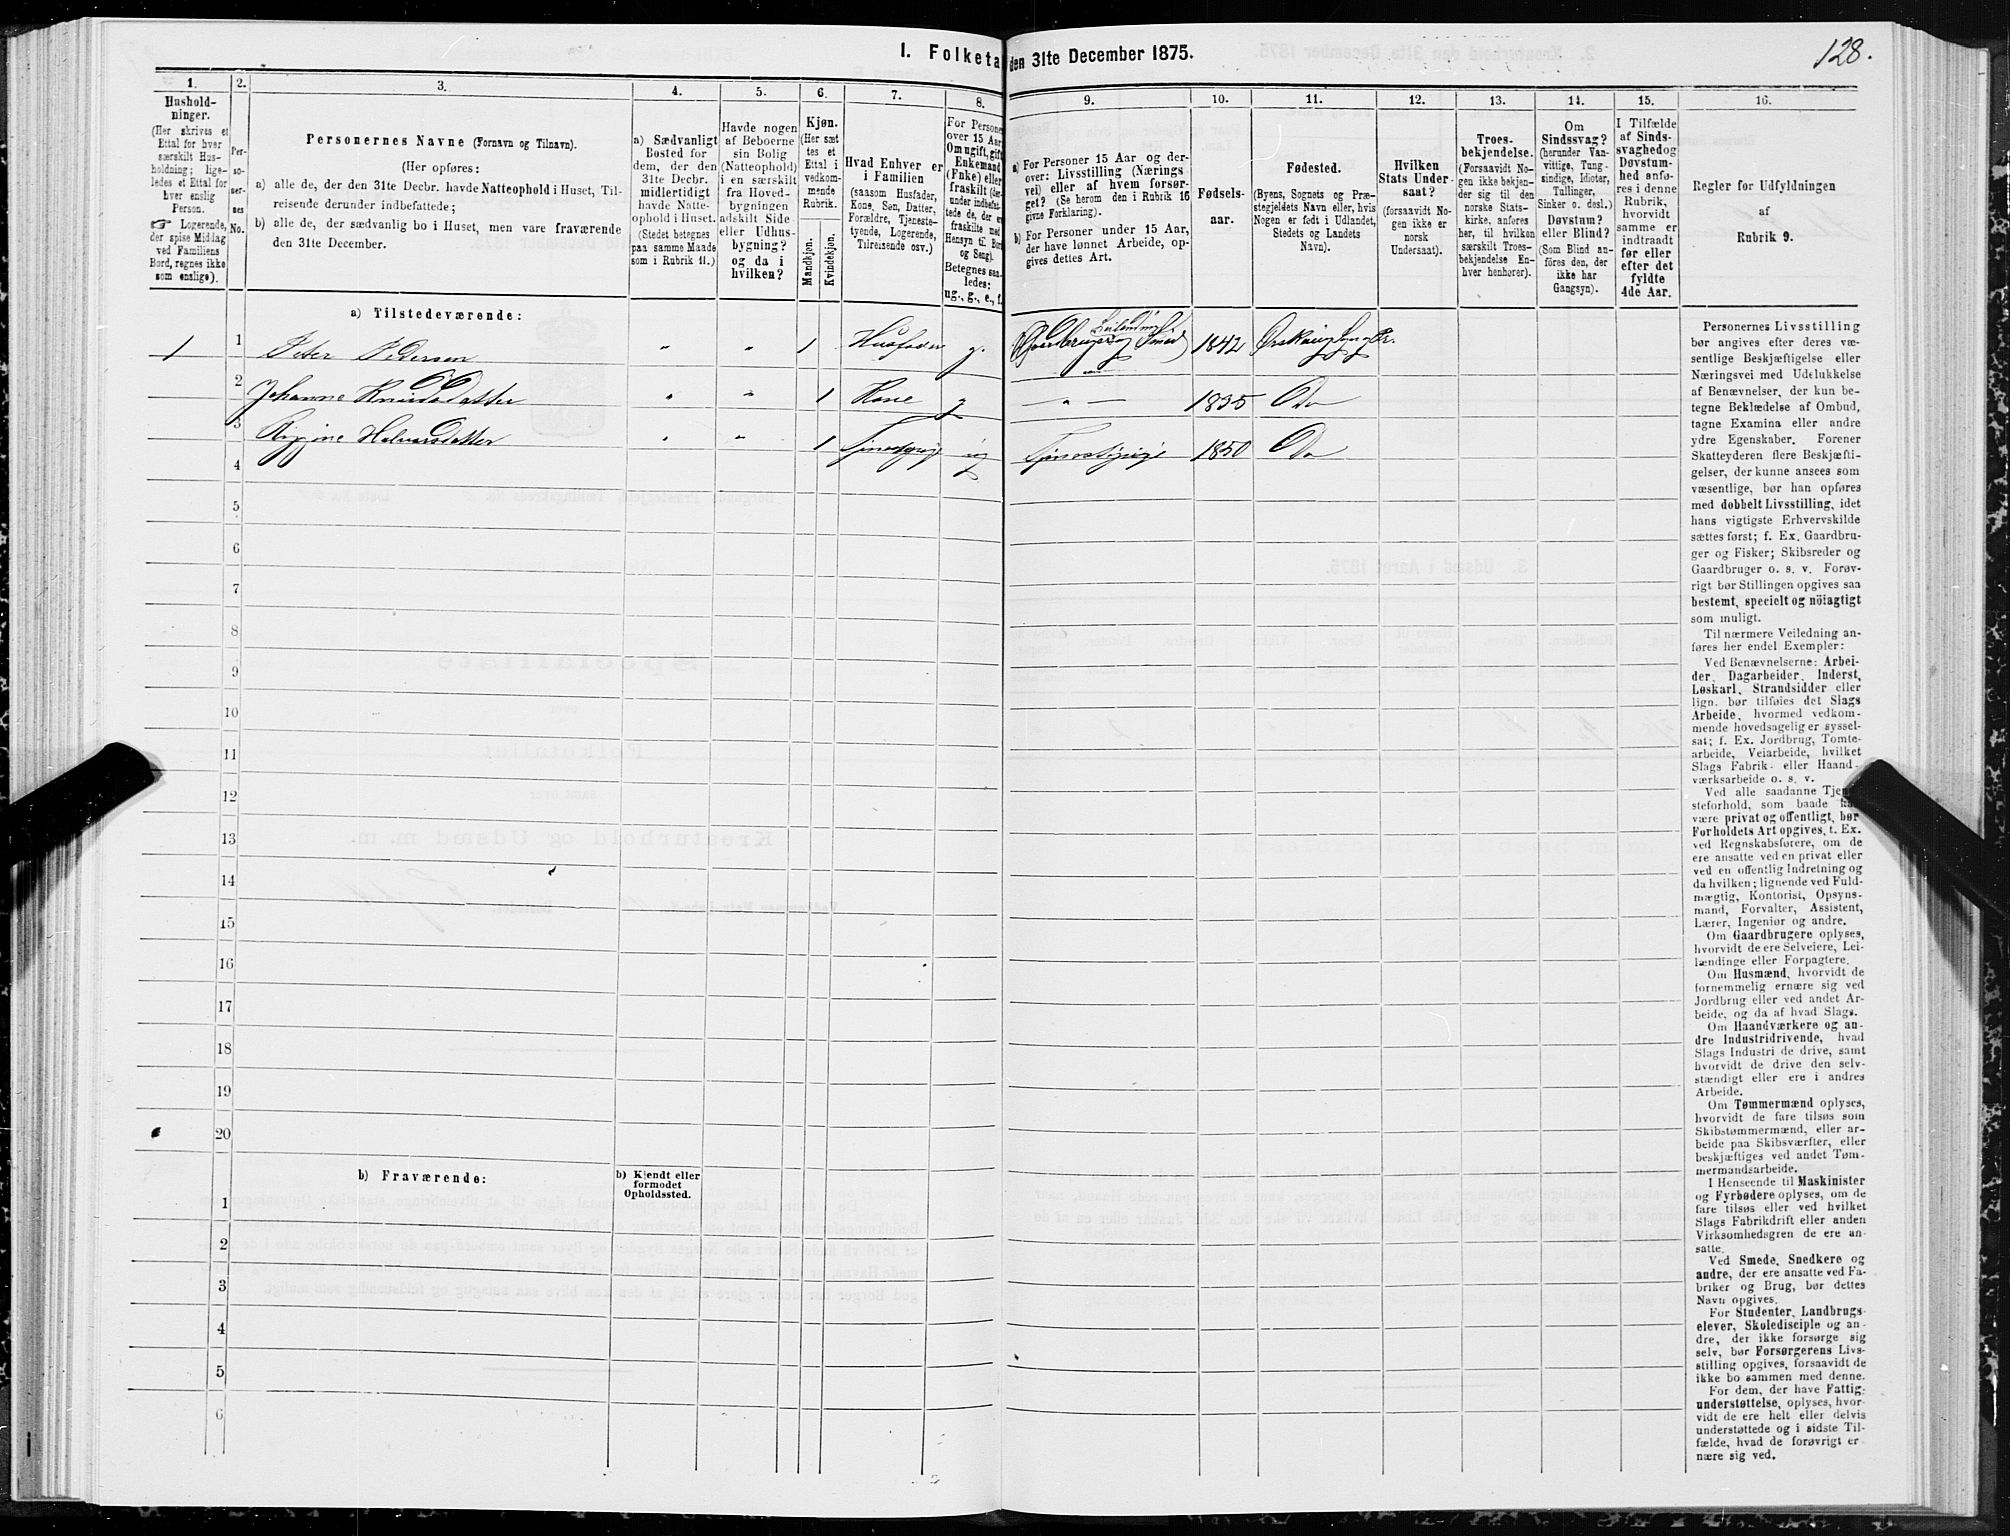 128.
I. Folketa
den 31te December 1875.
1.
Hushold-
ninger.
(Her skrives et
Ettal for hver
særskilt Hus-
holdning; lige-
ledes et Ettal for
hver enslig
Person.
☞ Logerende,
der spise Middag
ved Familiens
Bord, regnes ikke
som enslige).
2.
Per-
so-
ner-
nes
No.
3.
Personernes Navne (Fornavn og Tilnavn).
(Her opføres:
a) alle de, der den 31te Decbr. havde Natteophold i Huset, Til-
reisende derunder indbefattede;
b) alle de, der sædvanlig bo i Huset, men vare fraværende
den 31te December.
4.
a) Sædvanligt
Bosted for
dem, der den
31te Decbr.
midlertidigt
havde Natte-
ophold i Huset.
(Stedet betegnes
paa samme Maade
som i Rubrik 11.)
5.
Havde nogen
af Beboerne
sin Bolig
(Natteophold)
i en særskilt
fra Hoved-
bygningen
adskilt Side-
eller Udhus-
bygning?
og da i
hvilken?
6.
Kjøn.
(Her sæt
tes et
Ettal i
vedkom-
mende
Rubrik.
Mandkjøn.
Kvindekjøn.
7.
Hvad Enhver er
i Familien
(saasom Husfader,
Kone, Søn, Datter,
Forældre, Tjeneste-
tyende, Logerende,
Tilreisende osv.)
8.
For Persone
over 15 Aar
Om ugift, gift
Enkemand
(Enke) eller
fraskilt (der-
under indbefat-
tede de, der er
fraskilte med
Hensyn til Bor
og Seng).
Betegnes saa-
ledes:
ug., g., e., f.
9.
a) For Personer 15 Aar og der-
over: Livsstilling (Nærings
vei) eller af hvem forsør-
get? (Se herom den i Rubrik 16
givne Forklaring).
b) For Personer under 15 Aar,
der have lønnet Arbeide, op-
gives dettes Art.
10.
Fødsels-
aar.
11.
Fødested.
(Byens, Sognets og Præ-
stegjeldets Navn eller, hvis
Nogen er født i Udlandet,
Stedets og Landets
Navn).
12.
Hvilken
Stats Under-
saat?
(forsaavidt No-
gen ikke er
norsk
Undersaat).
13.
Troes-
bekjendelse.
(Forsaavidt No-
gen ikke bekjen-
der sig til den
norske Stats-
kirke, anføres
her, til hvilken
særskilt Troes-
bekjendelse En-
hver henhører).
14.
Om
Sindssvag?
(herunder Van-
vittige, Tung-
sindige, Idioter,
Tullinger,
Sinker o. desl.)
Døvstum?
eller Blind?
(Som Blind an-
føres den, der
ikke har
Gangsyn).
15.
I Tilfælde
af Sinds-
svaghed og
Døvstum-
hed anfø-
res i denne
Rubrik,
hvorvidt
samme er
indtraadt
før eller
efter det
fyldte
4de Aar.
16.
Regler for Udfyldningen
af
Rubrik 9.
a) Tilstedeværende:
1 1 Peter Pedersen " " 1 Husfader g. Gaardbruger og Smed 1842
Leilending
2 Johanne Knudsdatter " " 1 Kone g — " — 1835 Do
3 Halvorsdatter " " 1 ug 1850 Do
4
5
6
7
8
9
10
11
12
13
14
15
16
17
18
19
20
b) Fraværende:
b) Kjendt eller
formodet
Opholdssted.
1
2
3
4
5
6
Personernes Livsstilling
bør angives efter deres væ-
sentlige Beskjæftigelse eller
Næringsvei med Udelukkelse
af Benævnelser, der kun be-
tegne Beklædelse af Ombud,
tagne Examina eller andre
ydre Egenskaber. Forener
Skatteyderen flere Beskjæfti-
gelser, der kunne ansees som
væsentlige, bør han opføres
med dobbelt Livsstilling, idet
hans vigtigste Erhvervskilde
sættes først; f. Ex. Gaardbru-
ger og Fisker; Skibsreder og
Gaardbruger o. s. v. Forøv-
rigt bør Stillingen opgives saa
bestemt, specielt og nöiagtigt
som muligt.
Til nærmere Veiledning an-
føres her endel Exempler:
Ved Benævnelserne: Arbei-
der, Dagarbeider, Inderst,
Løskarl, Strandsidder eller
lign. bør tilføies det Slags
Arbeide, hvormed vedkom-
mende hovedsagelig er syssel-
sat; f. Ex. Jordbrug, Tomte-
arbeide, Veiarbeide, hvilket
Slags Fabrik- eller Haand-
værksarbeide o. s. v.
Ved alle saadanne Tjene-
steforhold, som baade kan
være privat og offentligt, bør
Forholdets Art opgives, t. Ex.
ved Regnskabsførere, om de
ere ansatte ved en privat eller
ved en offentlig Indretning og
da hvilken; lignende ved Fuld-
mægtig, Kontorist, Opsyns-
mand, Forvalter, Assistent,
Lærer, Ingeniør og andre.
Om Gaardbrugere oplyses,
hvorvidt de ere Selveiere, Lei-
lændinge eller Forpagtere.
Om Husmænd, hvorvidt de
fornemmelig ernære sig ved
Jordbrug eller ved andet Ar-
beide, og da af hvad Slags.
Om Haandværkere og an-
dre Industridrivende, hvad
Slags Industri de drive, samt
hvorvidt de drive den selv-
stændigt eller ere i andres
Arbeide.
Om Tømmermænd oplyses,
hvorvidt de fare tilsøs som
Skibstømmermænd, eller ar-
beide paa Skibsværfter, eller
beskjæftiges ved andet Tøm-
mermandsarbeide.
I Henseende til Maskinister
og Fyrbødere oplyses, om de
fare tilsøs eller ved hvilket
Slags Fabrikdrift eller anden
Virksomhedsgren de ere an-
satte.
Ved Smede, Snedkere og
andre, der ere ansatte ved Fa-
briker og Brug, bør dettes
Navn opgives.
For Studenter, Landbrugs-
elever, Skoledisciple og an-
dre, der ikke forsørge sig
selv, bør Forsørgerens Livs-
stilling opgives, forsaavidt de
ikke bo sammen med denne.
For dem, der have Fattig-
understøttelse, oplyses, hvor-
vidt de ere helt eller delvis
understøttede og i sidste Til-
fælde, hvad de forøvrigt er-
nære sig ved.